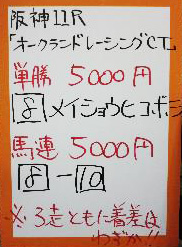 阪神11R
「オークランドレーシングCT」
単勝 5000円
8 メイショウヒコボシ
馬連 5000円
8-10
※3走ともに着差は
わずか!!